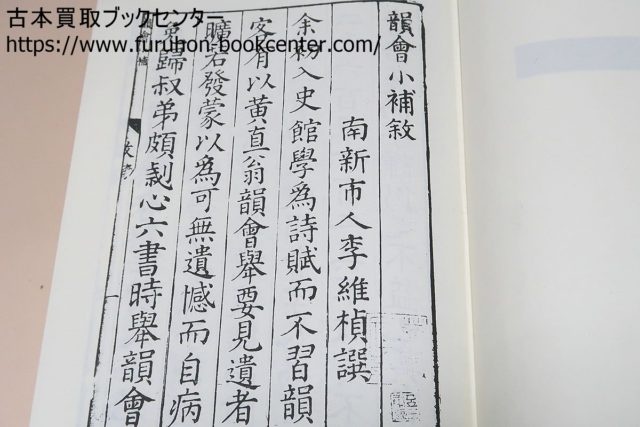 古本買取ブックセンター
https://www.furuhon-bookcenter.com/
韻會小補敘
南新市人李維楨譔
余初入史館學為詩賦而不習韻
客有以黃直翁韻會舉要見遺者
曠若發蒙以為可無遺憾而自病
歸叔弟頗剫心六書時舉韻會